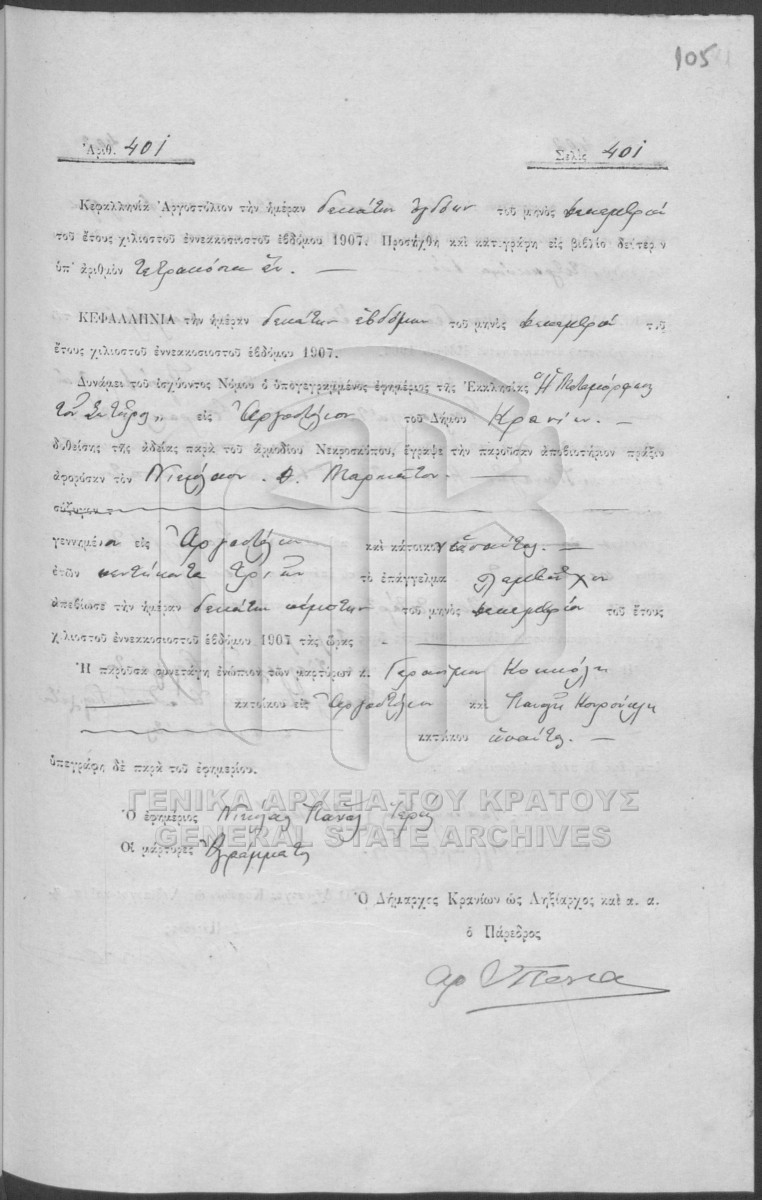 105
Ἀριθ. 401 Σελὶς 401
Κεφαλληνία Ἀργοστόλιον τὴν ἡμέραν δεκάτην ὀγδόην τοῦ μηνὸς Δεκεμβρίου
τοῦ ἔτους χιλιοστοῦ ἐννεακοσιοστοῦ ἑβδόμου 1907. Προσήχθη καὶ κατεγράφη εἰς βιβλίο δεύτερν
ὑπ' ἀριθμὸν τετρακόσια ἕν. —
ΚΕΦΑΛΛΗΝΙΑ τὴν ἡμέραν δεκάτην ἑβδόμην τοῦ μηνὸς Δεκεμβρίου τοῦ
ἔτους χιλιοστοῦ ἐννεακοσιοστοῦ ἑβδόμου 1907.
Δυνάμει τοῦ ἰσχύοντος Νόμου ὁ ὑπογεγραμμένος ἐφημέριος τῆς Ἐκκλησίας „Ἡ Μεταμόρφωσις
τοῦ Σωτῆρος„ εἰς Ἀργοστόλιον τοῦ Δήμου Κρανίων. —
δοθείσης τῆς ἀδείας παρὰ τοῦ ἁρμοδίου Νεκροσκόπου, ἔγραψε τὴν παροῦσαν ἀποβιωτήριον πρᾶξιν
ἀφορῶσαν τὸν Νικόλαον . Θ. Μαρκᾶτον. —
σύζυγον
γεννημένον εἰς Ἀργοστόλιον καὶ κάτοικον ἐνταῦθα. —
ἐτῶν πεντήκοντα τριῶν τὸ ἐπάγγελμα
ἀπεβίωσε τὴν ἡμέραν δεκάτην πέμπτην τοῦ μηνὸς Δεκεμβρίου τοῦ ἔτους
χιλιοστοῦ ἐννεακοσιοστοῦ ἑβδόμου 1907 τὰς ὥρας —
Ἡ παροῦσα συνετάγη ἐνώπιον τῶν μαρτύρων κ. Γεράσιμον Κοκκόλη
— κατοίκου εἰς Ἀργοστόλιον καὶ Παναγῆ
κατοίκου ἐνταῦθα. —
ὑπεγράφη δὲ παρὰ τοῦ ἐφημερίου.
ΓΕΝΙΚΑ ΑΡΧΕΙΑ ΤΟΥ ΚΡΑΤΟΥΣ
Ὁ ἐφημέριος Νικόλαος Ἱερεύς
GENERAL STATE ARCHIVES
Οἱ μάρτυρες Ἀγράμματοι
Ὁ Δήμαρχος Κρανίων ὡς Ληξίαρχος καὶ α. α.
ὁ Πάρεδρος